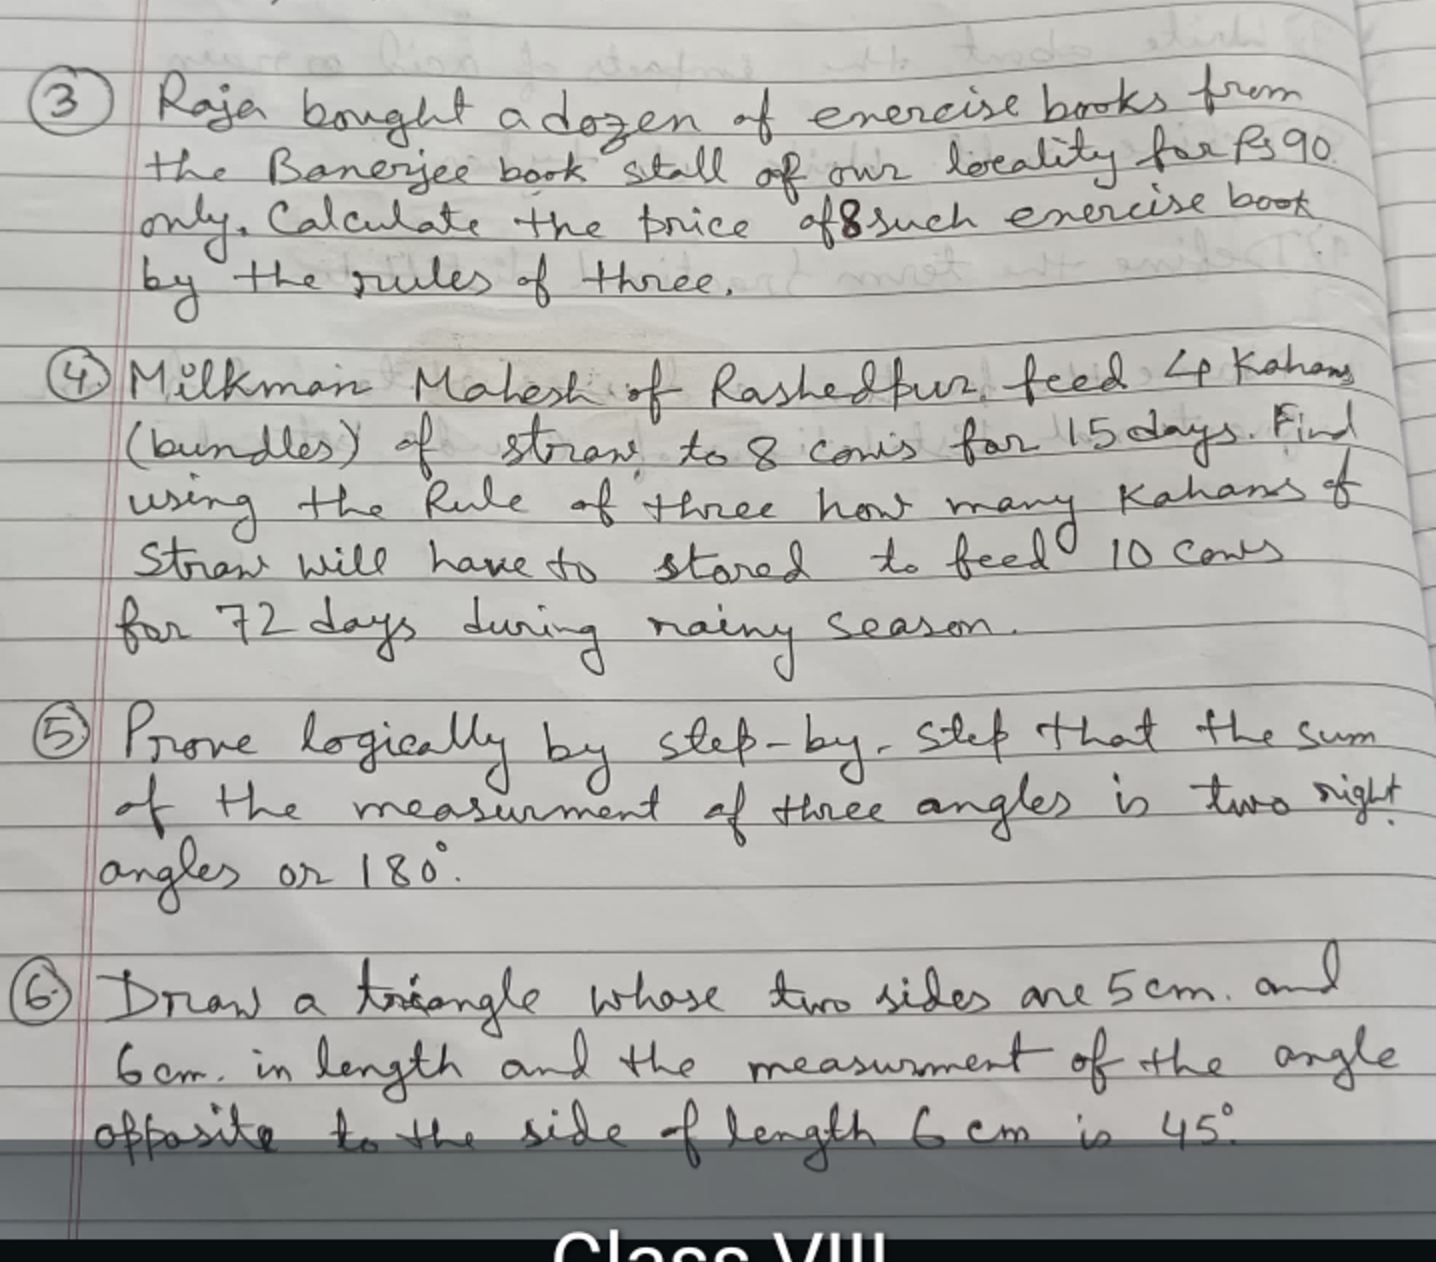 3 Raja bought a dozen of exercise books from
the Banerjee book stall of our locality for Rs 90
only. Calculate the price of 8 such exercise book
by the rules of three.
4 Milkman Mahesh of Rashedpur feed 4 Kahans
(bundles) of straw to 8 cows for 15 days. Find
using the Rule of three how many Kahans of
Straw will have to stored to feed 10 cows
for 72 days during rainy season.
5 Prove logically by step-by-step that the sum
of the measurment of three angles is two right
angles or 180°.
6 Draw a triangle whose two sides are 5 cm. and
6 cm. in length and the measurment of the angle
opposite to the side of length 6 cm is 45°.
Class VIII